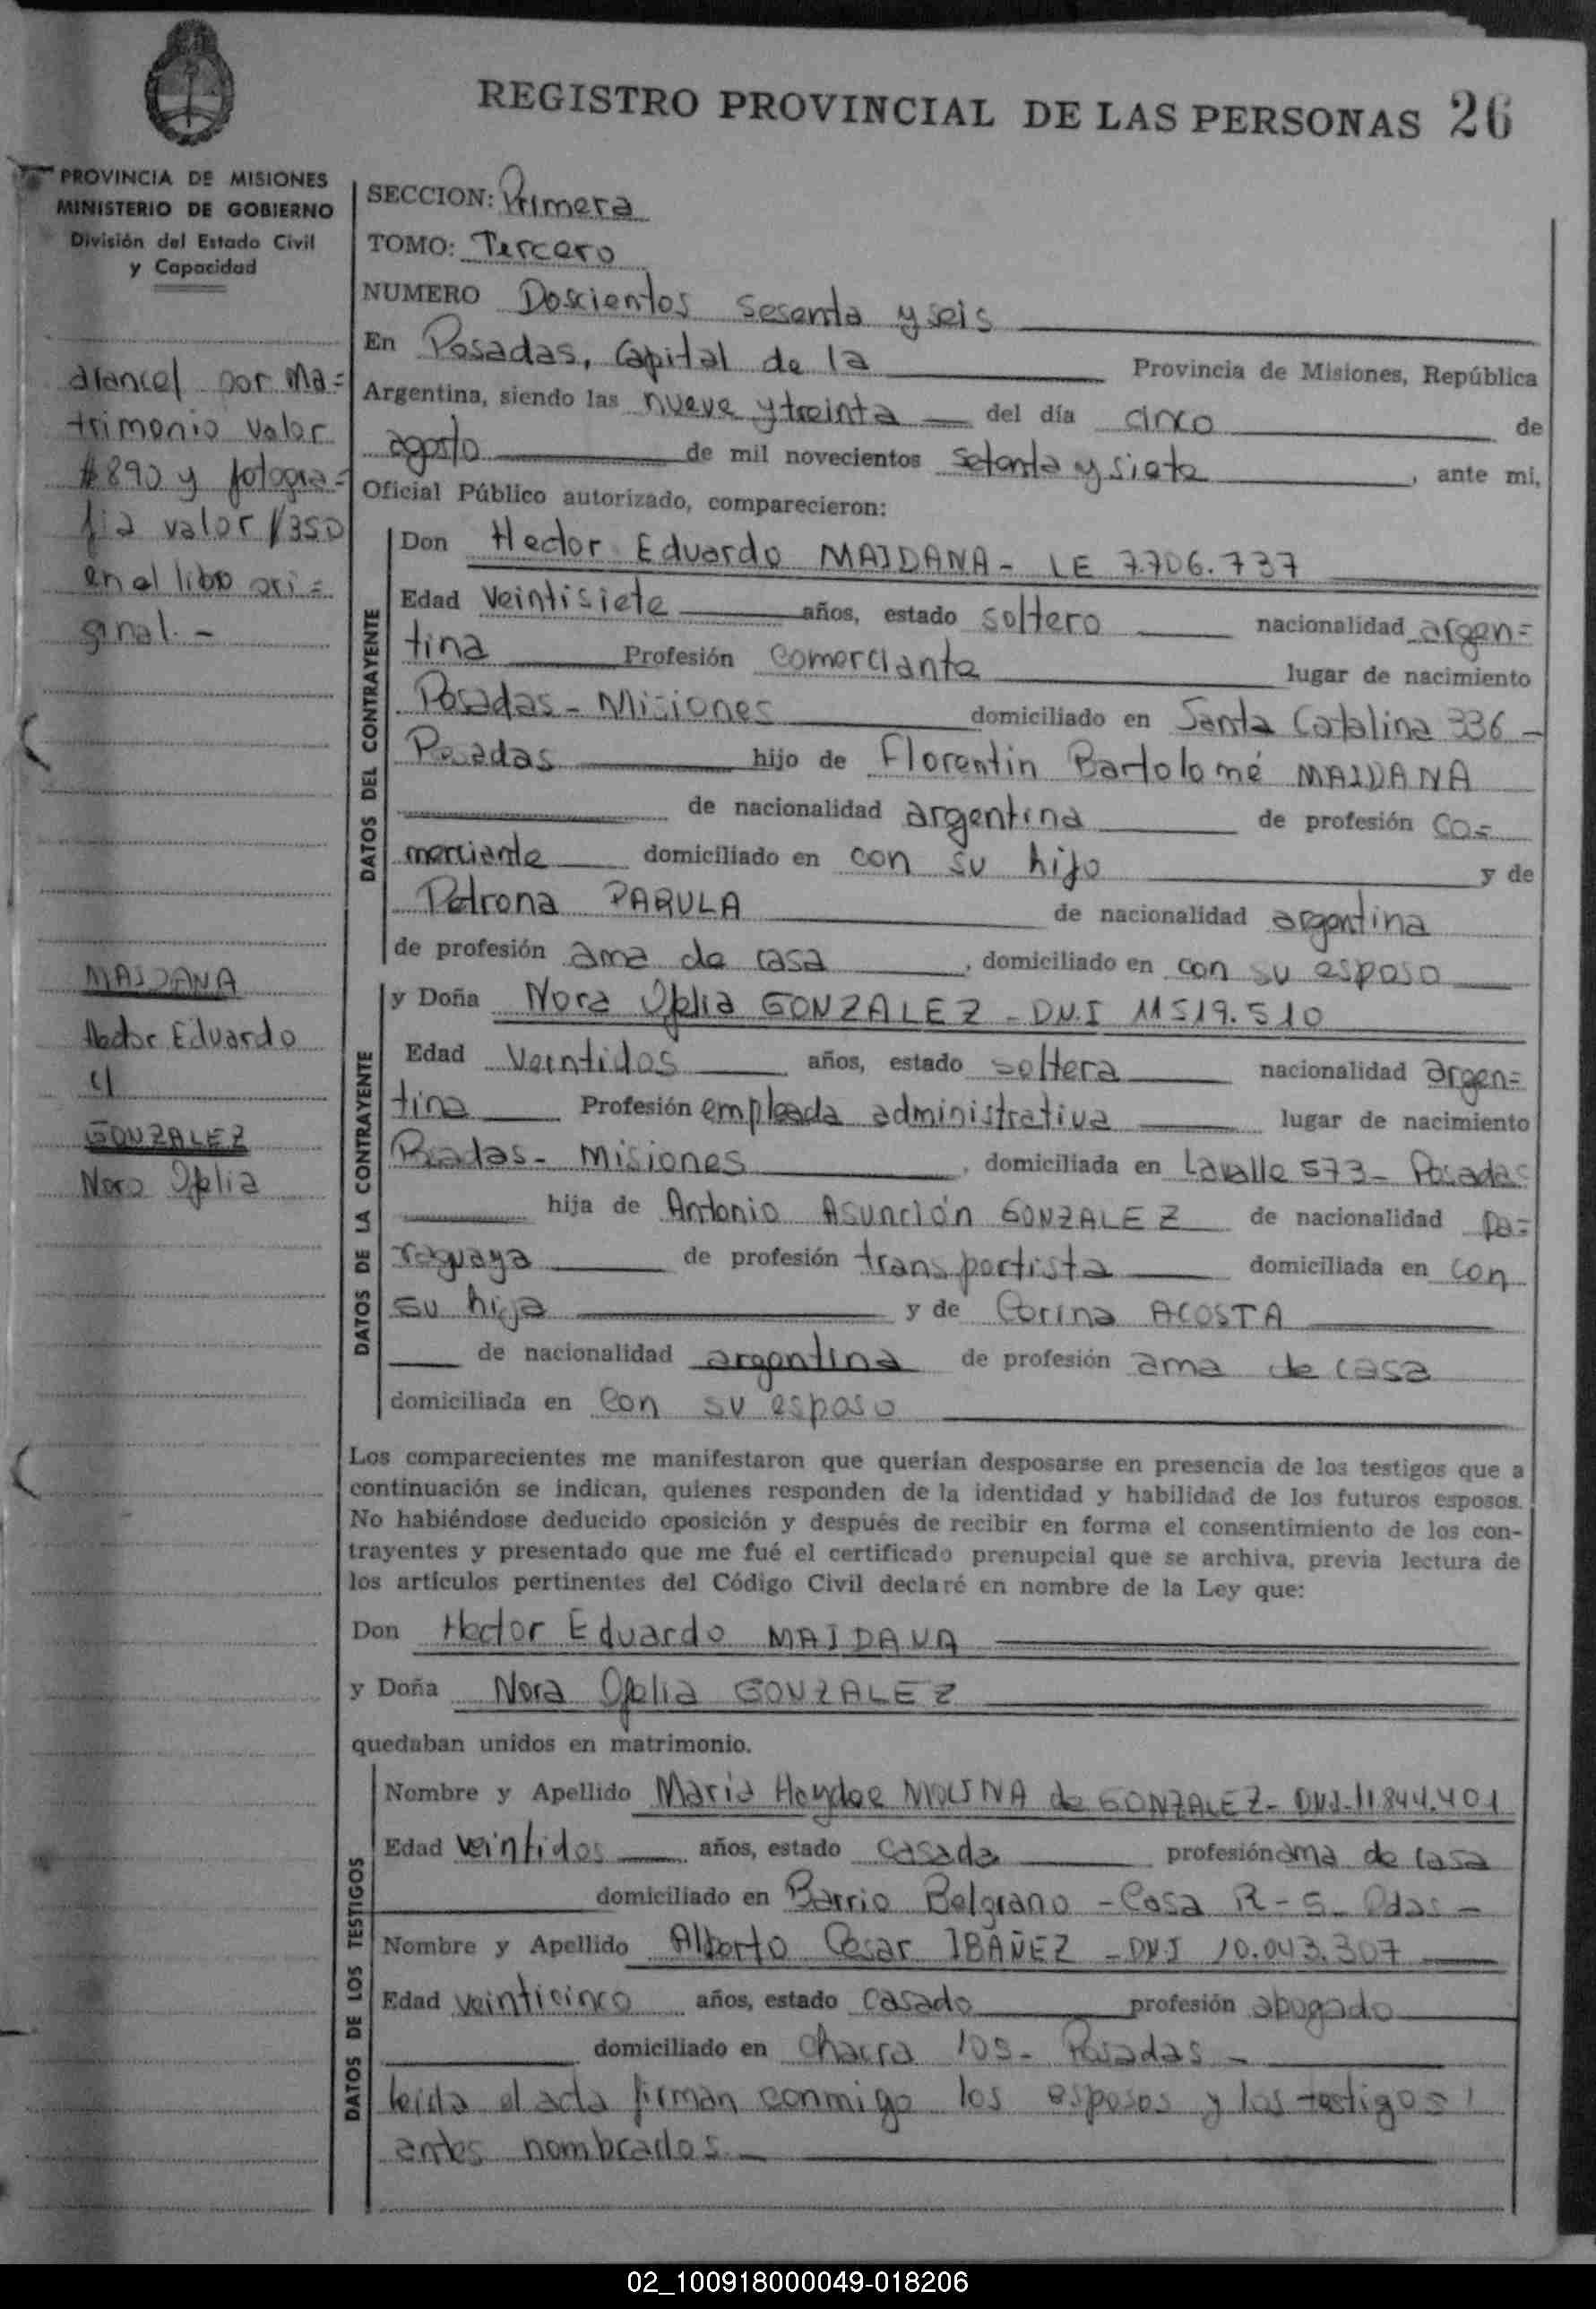 REGISTRO PROVINCIAL DE LAS PERSONAS 26
PROVINCIA DE MISIONES
MINISTERIO DE GOBIERNO
División del Estado Civil
y Capacidad
arancel por ma=
trimonio valor
$890 y fotogra=
fia valor $350
en el libro ori=
ginal. -
MAIDANA
Hector Eduardo
c/
GONZALEZ
Nora Ofelia
SECCION: Primera
TOMO: Tercero
NUMERO Doscientos sesenta y seis
En Posadas, Capital de la Provincia de Misiones, República
Argentina, siendo las nueve y treinta del día cinco de
agosto de mil novecientos setenta y siete, ante mi,
Oficial Público autorizado, comparecieron:
DATOS DEL CONTRAYENTE
Don Hector Eduardo MAIDANA - LE 7.706.737
Edad Veintisiete años, estado soltero nacionalidad argen=
tina Profesión comerciante lugar de nacimiento
Posadas - Misiones domiciliado en Santa Catalina 336 -
Posadas hijo de Florentin Bartolomé MAIDANA
de nacionalidad argentina de profesión co=
merciante domiciliado en con su hijo y de
Petrona PARULA de nacionalidad argentina
de profesión ama de casa, domiciliado en con su esposo
DATOS DE LA CONTRAYENTE
y Doña Nora Ofelia GONZALEZ - DN.I 11519.510
Edad Veintidos años, estado soltera nacionalidad argen=
tina Profesión empleada administrativa lugar de nacimiento
Posadas - Misiones, domiciliada en Lavalle 573 - Posadas
hija de Antonio Asunción GONZALEZ de nacionalidad pa=
raguaya de profesión transportista domiciliada en con
su hija y de Corina ACOSTA
de nacionalidad argentina de profesión ama de casa
domiciliada en con su esposo
Los comparecientes me manifestaron que querían desposarse en presencia de los testigos que a
continuación se indican, quienes responden de la identidad y habilidad de los futuros esposos.
No habiéndose deducido oposición y después de recibir en forma el consentimiento de los con-
trayentes y presentado que me fué el certificado prenupcial que se archiva, previa lectura de
los artículos pertinentes del Código Civil declaré en nombre de la Ley que:
Don Hector Eduardo MAIDANA
y Doña Nora Ofelia GONZALEZ
quedaban unidos en matrimonio.
DATOS DE LOS TESTIGOS
Nombre y Apellido Maria Haydee MOLINA de GONZALEZ - DNI - 11844.401
Edad veintidos años, estado casada profesión ama de casa
domiciliado en Barrio Belgrano - Casa R - 5 - Pdas -
Nombre y Apellido Alberto Cesar IBAÑEZ - DNI 10.043.307
Edad veinticinco años, estado casado profesión abogado
domiciliado en chacra 105 - Posadas -
leida el acta firman conmigo los esposos y los testigos
antes nombrados. -
02_100918000049-018206